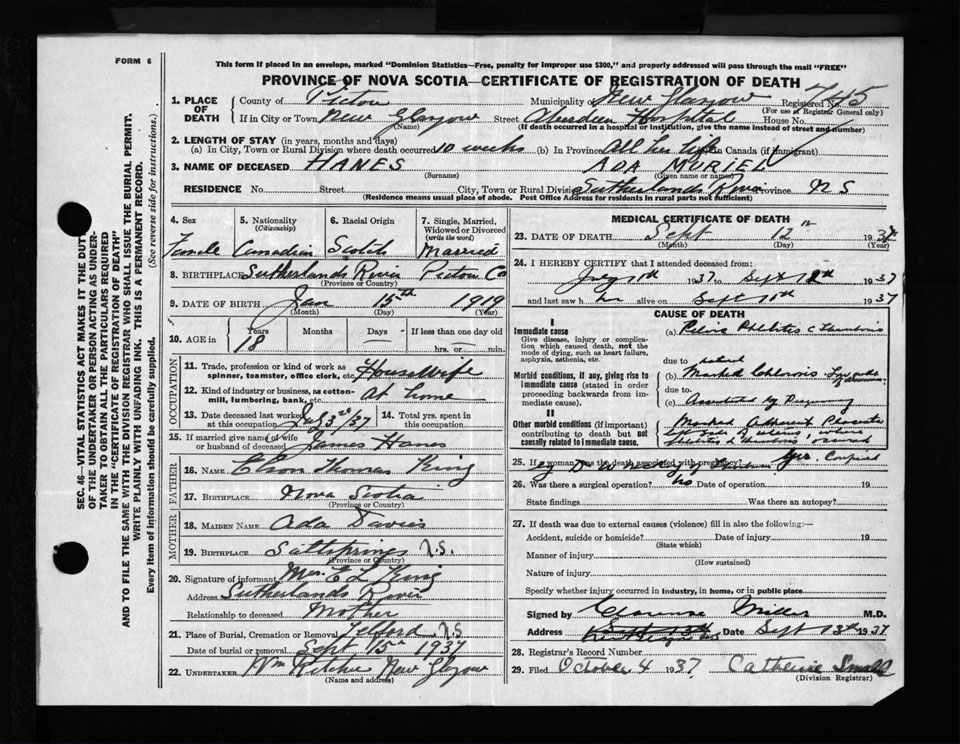 FORM 6
This form if placed in an envelope, marked "Dominion Statistics—Free, penalty for improper use $300," and properly addressed will pass through the mail "FREE"
PROVINCE OF NOVA SCOTIA—CERTIFICATE OF REGISTRATION OF DEATH
1. PLACE OF DEATH County of Pictou Municipality of New Glasgow Registered No. 745
(For use of Registrar General only)
If in City or Town New Glasgow Street Aberdeen Hospital House No.
(Name) (If death occurred in a hospital or institution, give the name instead of street and number)
2. LENGTH OF STAY (in years, months and days)
(a) In City, Town or Rural Division where death occurred 10 weeks (b) In Province All her life In Canada (if immigrant)
3. NAME OF DECEASED HANES ADA MURIEL
(Surname) (Given name or names)
RESIDENCE No. Street City, Town or Rural Division Sutherlands River Province N S
(Residence means usual place of abode. Post Office Address for residents in rural parts not sufficient)
4. Sex 5. Nationality 6. Racial Origin 7. Single, Married, Widowed or Divorced
(Citizenship) (write the word)
Female Canadian Scotch Married
8. BIRTHPLACE Sutherlands River Pictou Co
(Province or Country)
9. DATE OF BIRTH Jan 15th 1919
(Month) (Day) (Year)
10. AGE in Years Months Days If less than one day old
18 hrs. or min.
OCCUPATION
11. Trade, profession or kind of work as spinner, teamster, office clerk, etc. Housewife
12. Kind of industry or business, as cotton-mill, lumbering, bank, etc. At home
13. Date deceased last worked at this occupation /37 14. Total yrs. spent in this occupation
15. If married give name of wife or husband of deceased James Hanes
FATHER
16. NAME Thomas King
17. BIRTHPLACE Nova Scotia
(Province or Country)
MOTHER
18. MAIDEN NAME Ada Davies
19. BIRTHPLACE Saltsprings N.S.
(Province or Country)
20. Signature of informant Mrs. E L King
Address Sutherlands River
Relationship to deceased Mother
21. Place of Burial, Cremation or Removal Telford N.S.
Date of burial or removal Sept 15th 1937
22. UNDERTAKER Wm Ritchie New Glasgow
(Name and address)
MEDICAL CERTIFICATE OF DEATH
23. DATE OF DEATH Sept 12th 1937
(Month) (Day) (Year)
24. I HEREBY CERTIFY that I attended deceased from:
1937 to Sept 1937
and last saw her alive on Sept 1937
CAUSE OF DEATH
I
Immediate cause
Give disease, injury or complication which caused death, not the mode of dying, such as heart failure, asphyxia, asthenia, etc.
(a) Pelvic Phlebitis
due to
Morbid conditions, if any, giving rise to immediate cause (stated in order proceeding backwards from immediate cause).
(b) Marked Chlorosis
due to
(c) Pregnancy
II
Other morbid conditions (if important) contributing to death but not causally related to immediate cause.
25. If a woman, was the death associated with pregnancy? Yes
26. Was there a surgical operation? No Date of operation 19
State findings Was there an autopsy?
27. If death was due to external causes (violence) fill in also the following:—
Accident, suicide or homicide? Date of injury 19
(State which)
Manner of injury
(How sustained)
Nature of injury
Specify whether injury occurred in Industry, in home, or in public place
Signed by Clarence Miller M.D.
Address Date Sept 13th 1937
28. Registrar's Record Number
29. Filed October 4 1937 Catherine Small
(Division Registrar)
SEC. 46—VITAL STATISTICS ACT MAKES IT THE DUTY
OF THE UNDERTAKER OR PERSON ACTING AS UNDER-
TAKER TO OBTAIN ALL THE PARTICULARS REQUIRED
IN THE "CERTIFICATE OF REGISTRATION OF DEATH"
AND TO FILE THE SAME WITH THE DIVISION REGISTRAR WHO SHALL ISSUE THE BURIAL PERMIT.
WRITE PLAINLY WITH UNFADING INK. THIS IS A PERMANENT RECORD.
Every item of information should be carefully supplied. (See reverse side for instructions.)